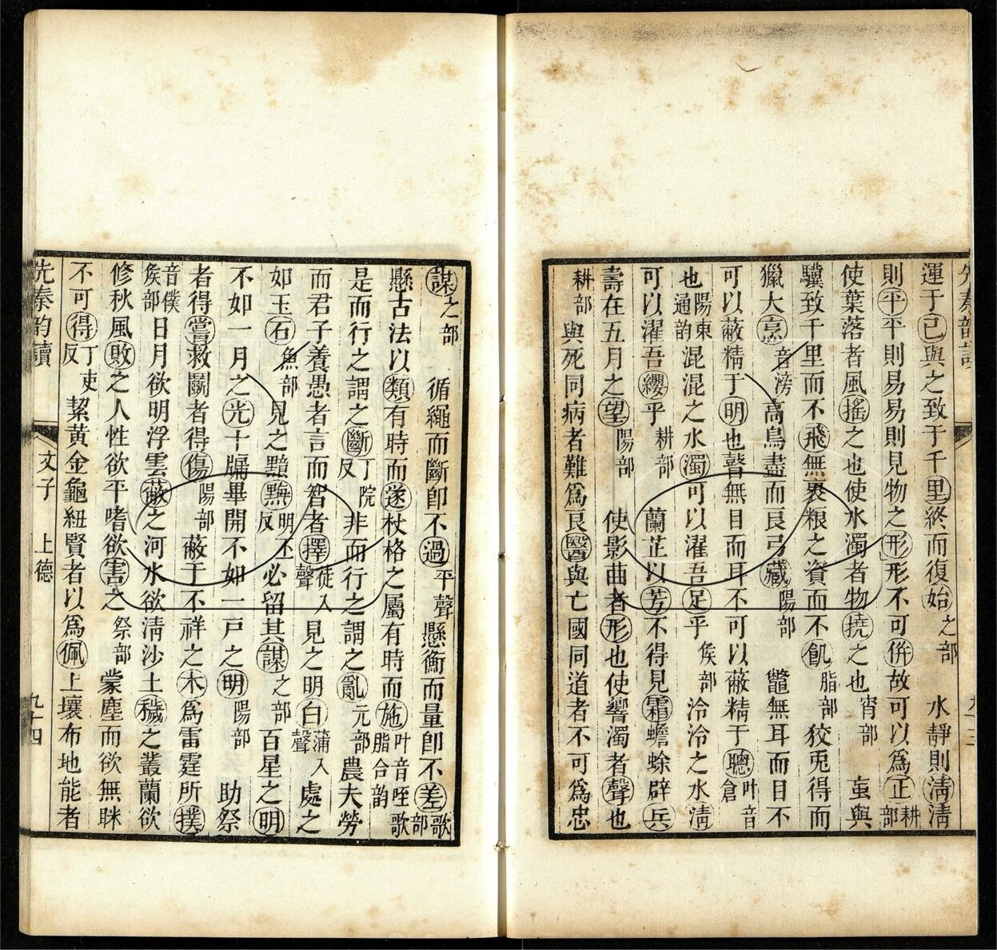 運于己與之致于千里終而復始之部　水靜則淸淸
則平平則易易則見物之形形不可併故可以爲正耕部
使葉落者風搖之也使水濁者物撓之也宵部　䖝與
驥致千里而不飛無裹粮之資而不飢脂部　狡兎得而
獵犬烹音滂高鳥盡而良弓藏陽部　鼈無耳而目不
可以蔽精于明也瞽無目而耳不可以蔽精于聰叶音倉
也陽東通韵混混之水濁可以濯吾足乎侯部　泠泠之水淸
可以濯吾纓乎耕部　蘭芷以芳不得見霜蟾蜍辟兵
壽在五月之望陽部　使影曲者形也使響濁者聲也
耕部　與死同病者難爲良醫與亡國同道者不可爲忠
謀之部　循繩而斷卽不過平聲懸衡而量卽不差歌部
懸古法以類有時而遂杖格之屬有時而施叶音㖶歌脂合韵
是而行之謂之斷丁院反非而行之謂之亂元部　農夫勞
而君子養愚者言而智者擇徒入聲見之明白蒲入聲處之
如玉石魚部　見之黯黣明丕反必留其謀之部　百星之明
不如一月之光十牖畢開不如一戶之明陽部　助祭
者得嘗救鬭者得傷陽部　蔽于不祥之木爲雷霆所撲
音僕侯部日月欲明浮雲蔽之河水欲淸沙土穢之叢蘭欲
修秋風敗之人性欲平嗜欲害之祭部　蒙塵而欲無眯
不可得丁吏反　絜黃金龜紐賢者以爲佩土壤布地能者
先秦韵讀
文子　上德
九十四